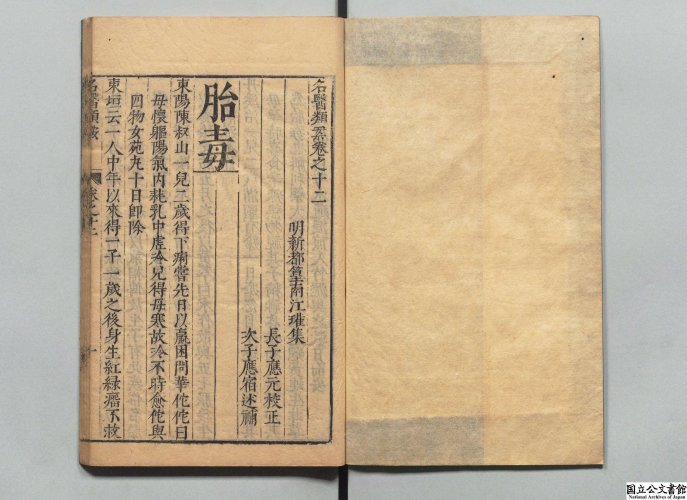 名醫類案卷之十二
明新都篁南江瓘集
長子應元校正
次子應宿述補
胎毒
東陽陳叔山一兒二歲得下痢嘗先日以羸困問華佗佗曰
母懷軀陽氣內耗乳中虛冷兒得母寒故冷不時愈佗與
四物女苑丸十日即除
東垣云一人中年以來得一子一歲之後身生紅緑瘤不救
名醫類案
卷之十二
一
国立公文書館
National Archives of Japan